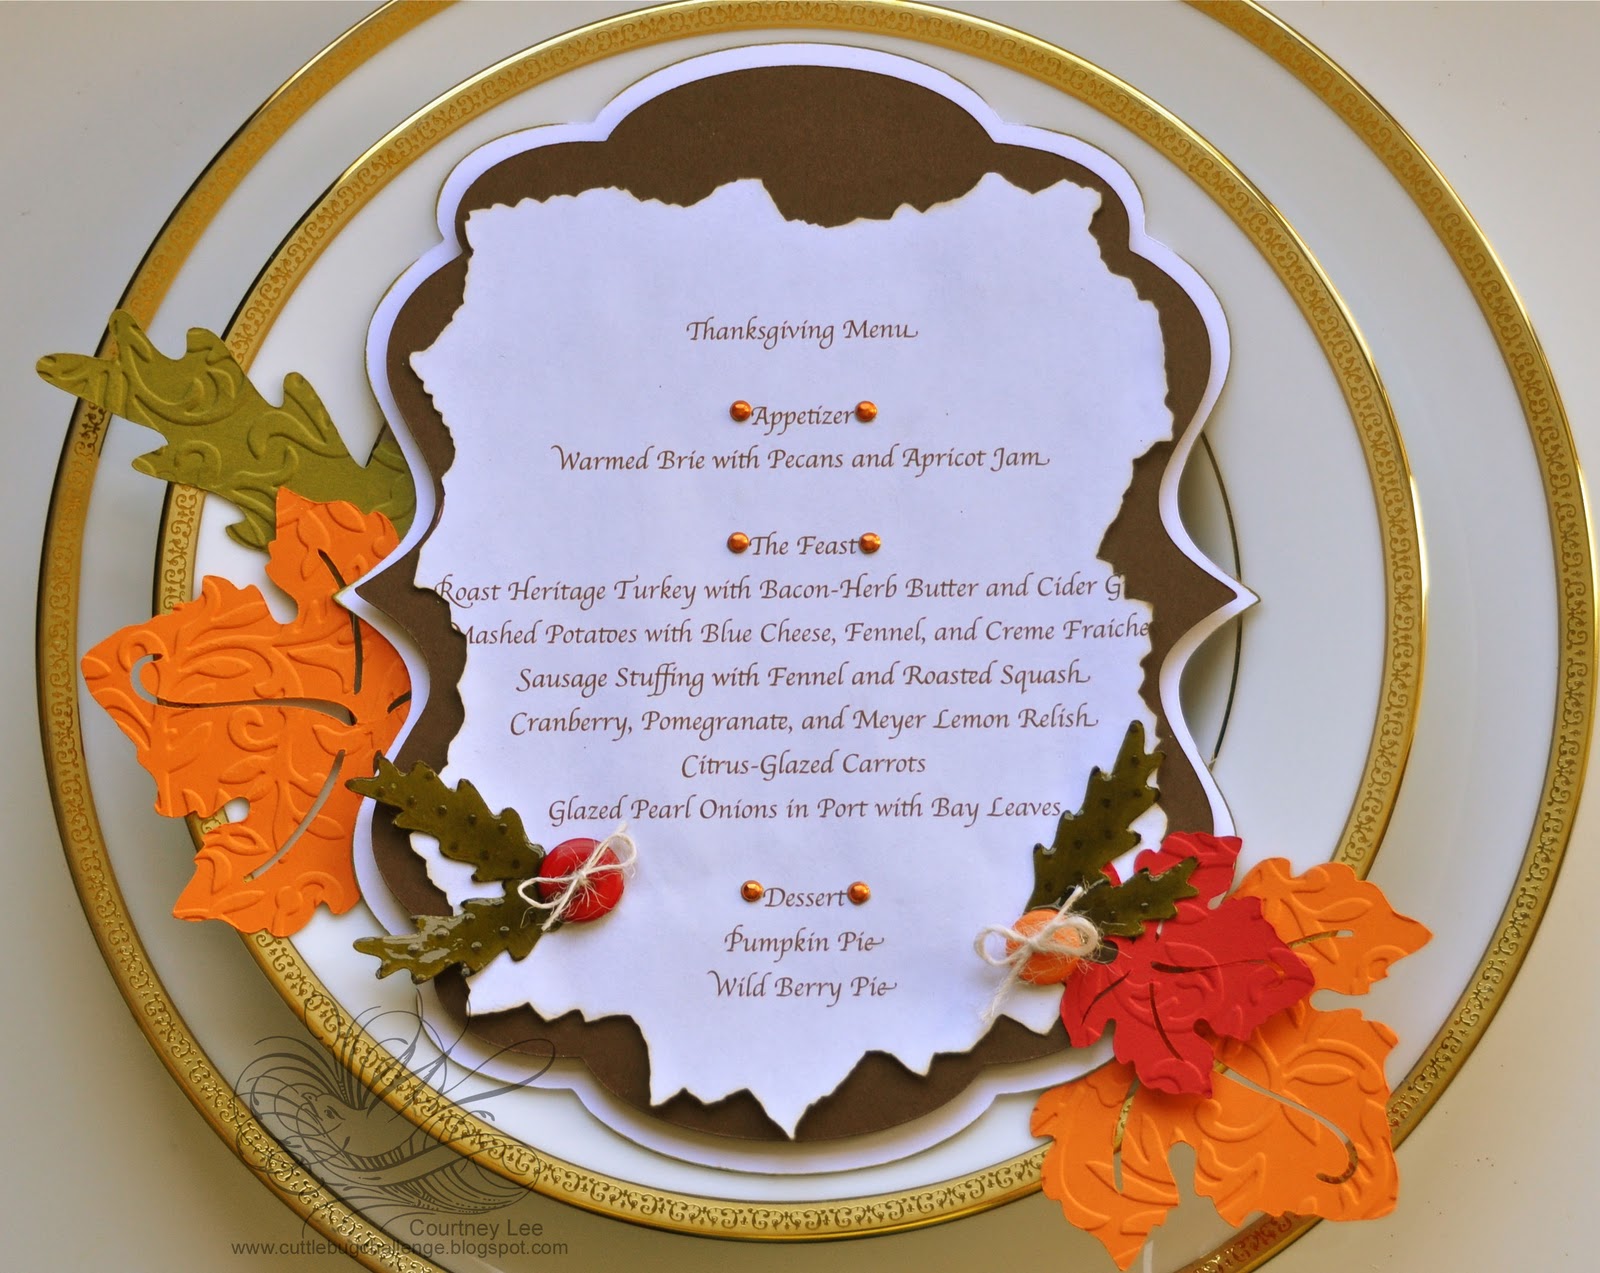 Thanksgiving Menu
Appetizer
Warmed Brie with Pecans and Apricot Jam
The Feast
Roast Heritage Turkey with Bacon-Herb Butter and Cider G
Mashed Potatoes with Blue Cheese, Fennel, and Creme Fraiche
Sausage Stuffing with Fennel and Roasted Squash
Cranberry, Pomegranate, and Meyer Lemon Relish
Citrus-Glazed Carrots
Glazed Pearl Onions in Port with Bay Leaves
Dessert
Pumpkin Pie
Wild Berry Pie
Courtney Lee
www.cuttlebugchallenge.blogspot.com